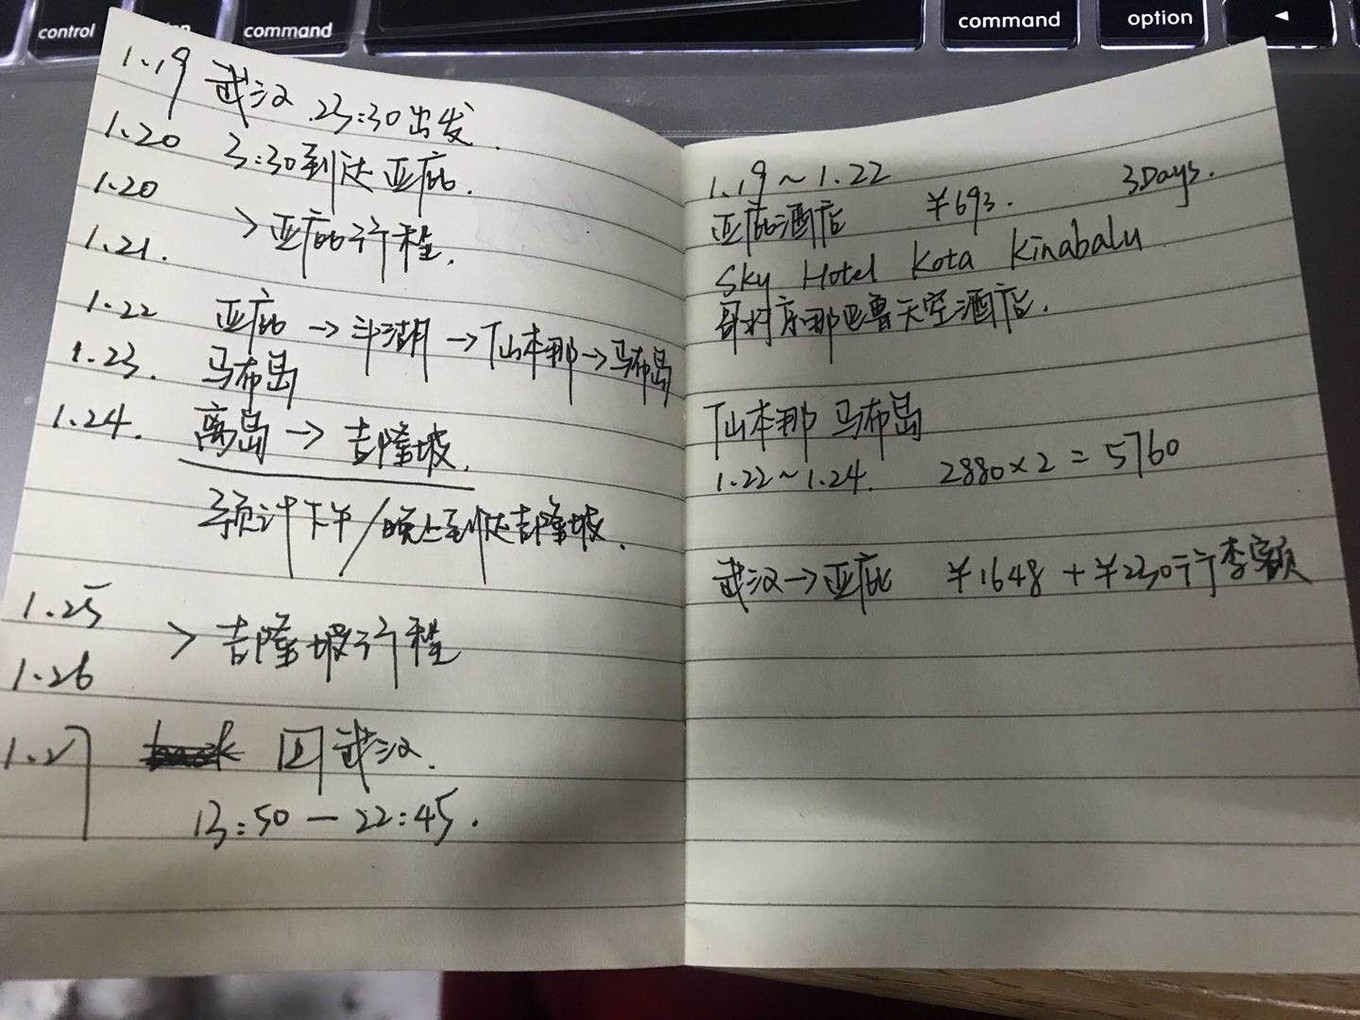 control
command
command
option
1.19 武汉 23:30出发.
1.20 3:30到达亚庇.
1.20
> 亚庇行程.
1.21.
1.22 亚庇→斗湖→仙本那→马布岛
1.23. 马布岛
1.24. 离岛→吉隆坡.
预计下午/晚上到达吉隆坡.
1.25
> 吉隆坡行程
1.26
1.27 回武汉.
13:50 — 22:45.
1.19~1.22 3Days.
亚庇酒店 ¥693.
Sky Hotel Kota Kinabalu
哥打京那巴鲁天空酒店.
仙本那 马布岛
1.22~1.24. 2880×2=5760
武汉→亚庇 ¥1648+¥230行李额